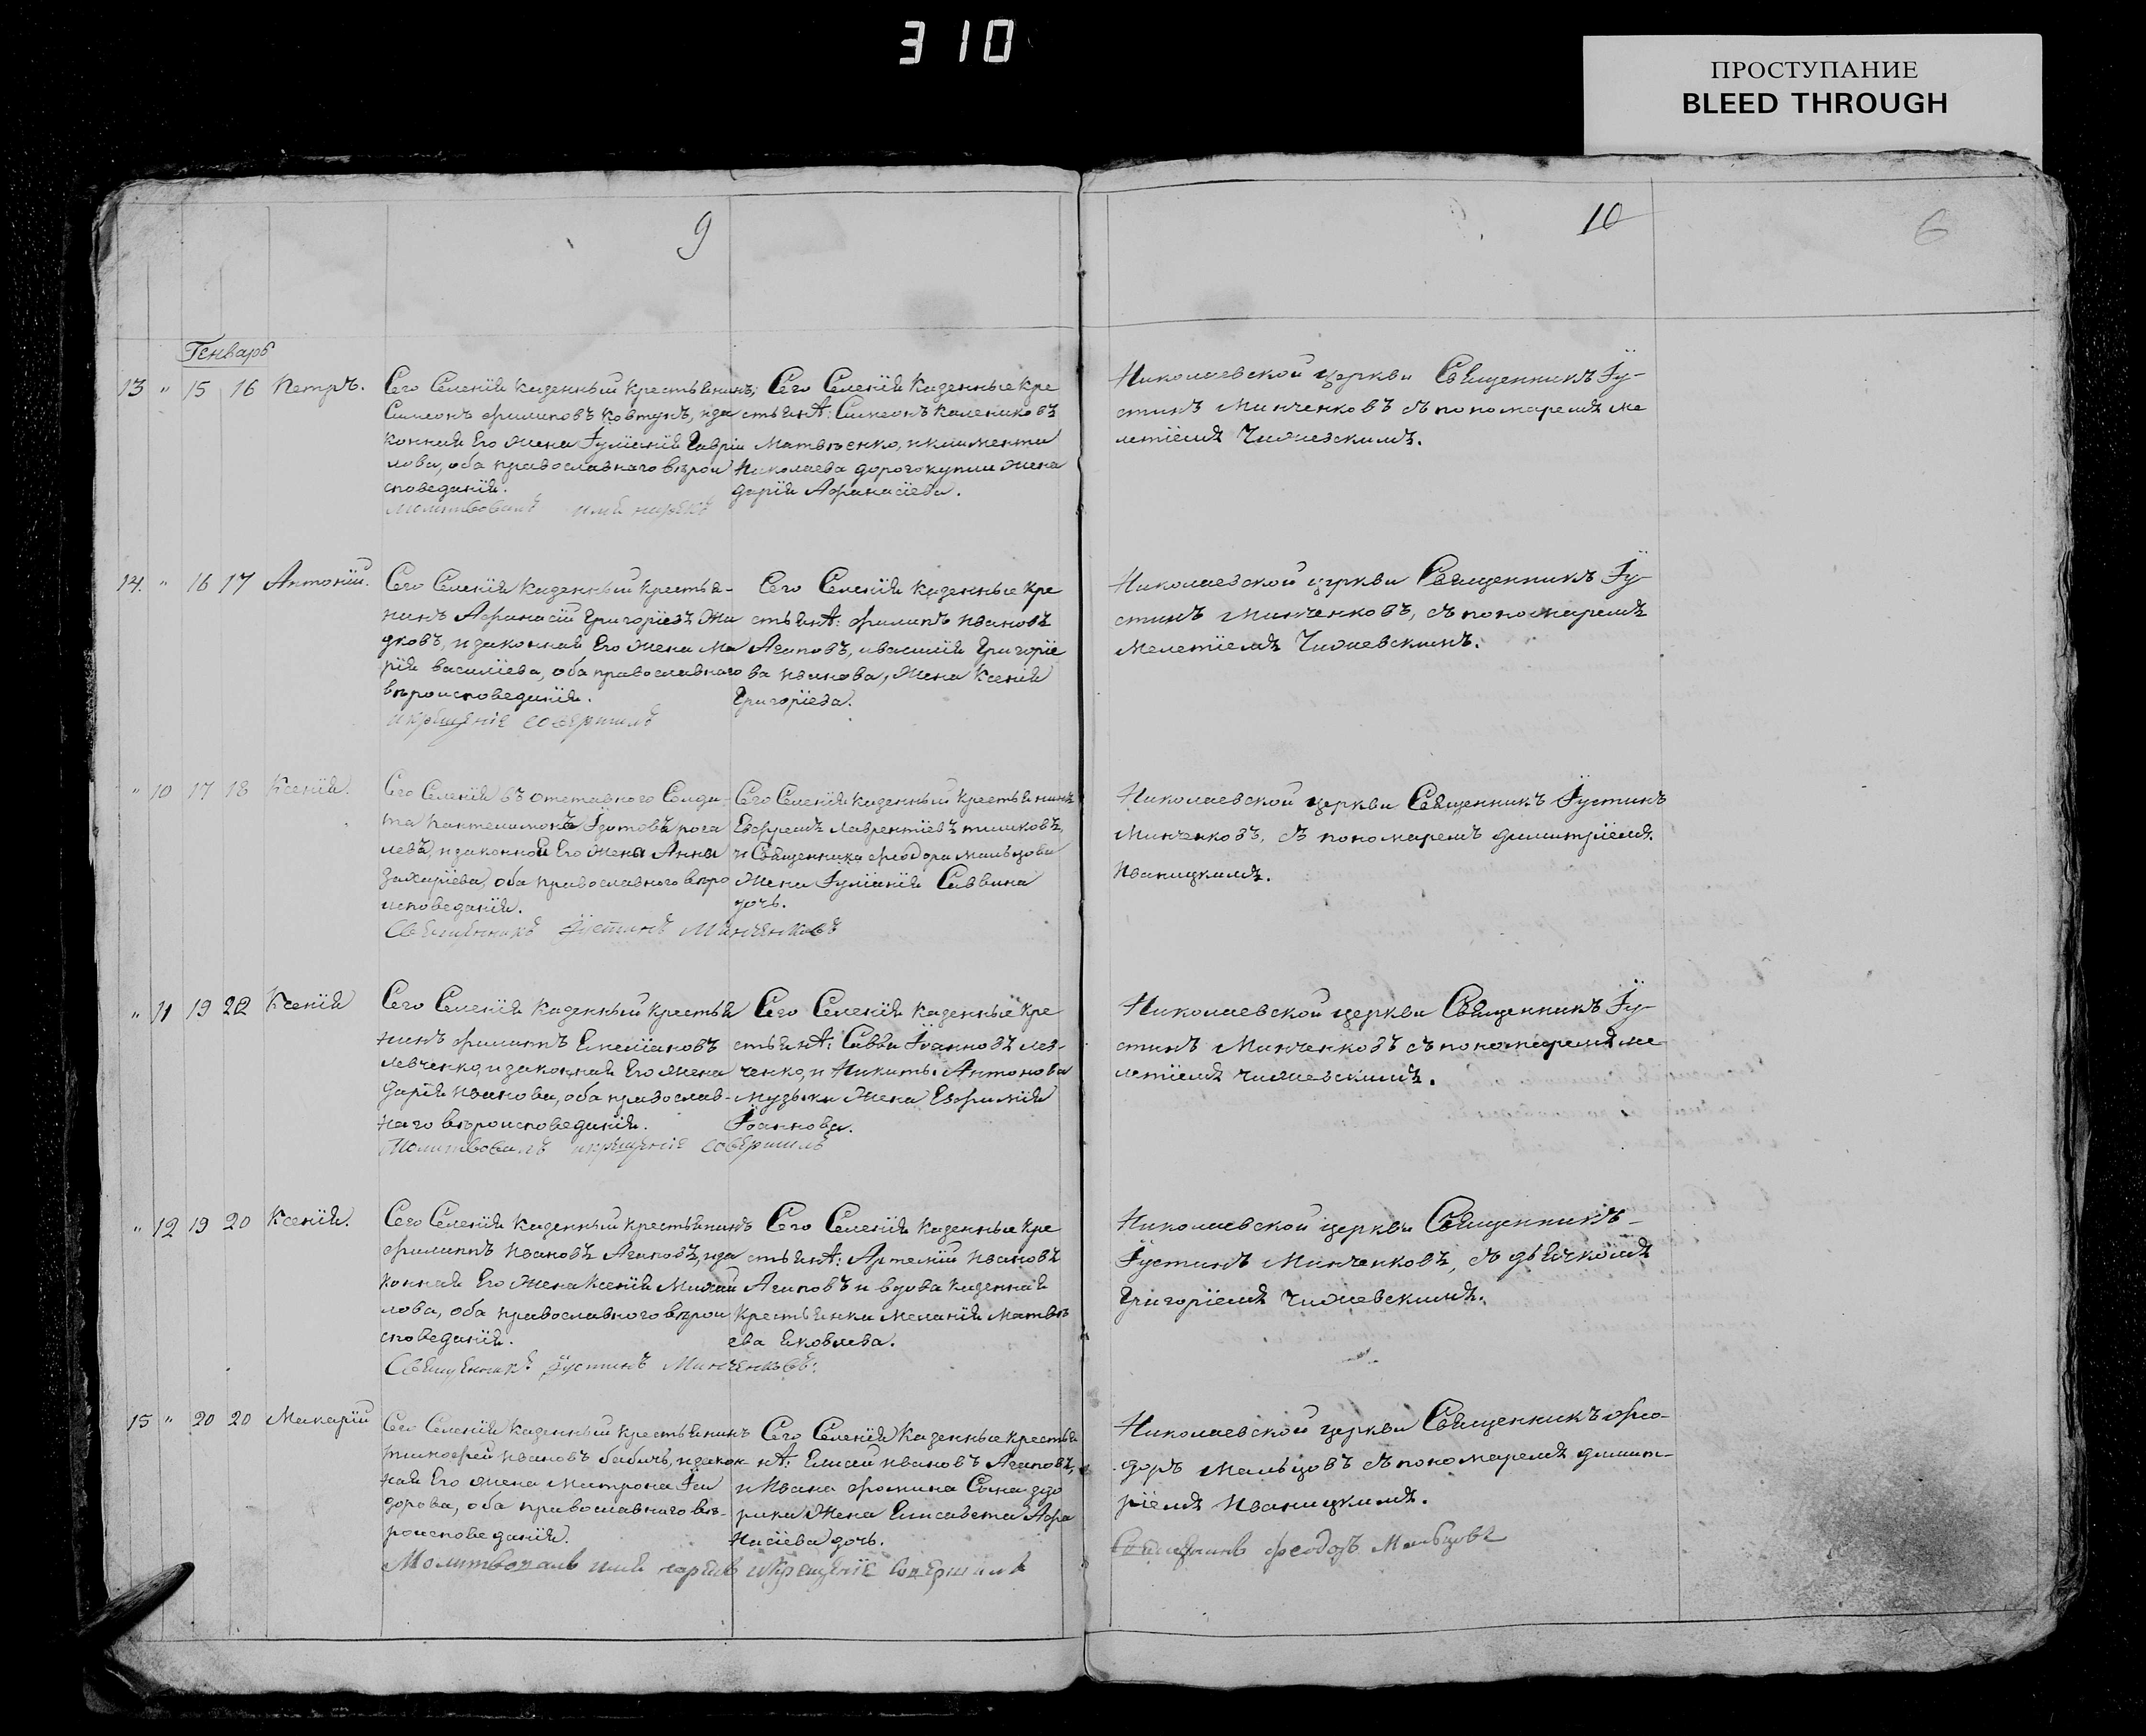 310
ПРОСТУПАНИЕ
BLEED THROUGH
9
10
6
Генварь
13 " 15 16 Петръ.
Сего Селенія казенный крестьянинъ,
Симеонъ Филиповъ Ковтунъ, иза
конная Его Жена Іуліанія Гаврiи
лова, оба православнаго вѣрои
споведанія.
Молитвовалъ имя нарекъ
Сего Селенія Казенные Кре
стьянѣ: Симеонъ Калениковъ
Матвѣенко, и климента
Николаева дорогокупли жена
Дарія Афанасіева.
Николаевской церкви Священникъ Іу-
стинъ Минченковъ съ пономаремъ ме
летіемъ Чижевскимъ.
14. " 16 17 Антоній.
Сего Селенія казенный крестья-
нинъ Афанасій Григоріевъ Жа
дковъ, изаконная Его жена Ма
рія василіева, оба православнаго
вѣроисповеданія.
икрещеніе совершилъ
Сего Селенія казенные кре
стьянѣ: Филипъ Ивановъ
Агаповъ, ивасилія Григоріе
ва Иванова, жена Ксенія
Григоріева.
Николаевской церкви Священникъ Іу-
стинъ Минченковъ, съ пономаремъ
Мелетіемъ Чижевскимъ.
" 10 17 18 Ксенія.
Сего Селенія въ отставного Солда-
та Пантелимонъ
левъ, изаконной Его Жена Анна
Захаріева, оба православного вѣро
исповеданія.
Священникъ Іустинъ Минченковъ
Сего Селенія казенный крестьянинъ
Ефремъ Лаврентіевъ
и Священника Феодора Мальцова
Жена Іуліанія Саввина
дочь.
Николаевской церкви Священникъ Іустинъ
Минченковъ, съ пономаремъ Димитріемъ
Иваницкимъ.
" 11 19 20 Ксенія
Сего Селенія казенный крестья
нинъ Филиппъ Емеліановъ
левченко, изаконная Его жена
Дарія Иванова, оба православ-
наго вѣроисповеданія.
Молитвовалъ икрещеніе совершилъ
Сего Селенія казенные кре
стьянѣ: Савва Іоанновъ лев-
ченко, и Никиты Антонова
музыки Жена Евфимія
Іоаннова.
Николаевской церкви Священникъ Іу-
стинъ Минченковъ съ пономаремъ ме
летіемъ чижевскимъ.
" 12 19 20 Ксенія.
Сего Селенія казенный крестьянинъ
Филиппъ Ивановъ Агаповъ, иза
конная Его Жена Ксенія Михаи
лова, оба православного вѣрои
споведанія.
Священникъ Іустинъ Минченковъ.
Сего Селенія казенные кре
стьянѣ: Артемій Ивановъ
Агаповъ и вдова казенная
крестьянка Меланія Матвѣ
ева яковлева.
Николаевской церкви Священникъ-
Іустинъ Минченковъ, съ дьячкомъ
Григоріемъ Чижевскимъ.
15 " 20 20 Макарій
Сего Селенія казенный крестьянинъ
Тимофей Ивановъ бабичь, изакон-
ная Его Жена Матрона Іси
дорова, оба православного вѣ-
роисповеданія.
Молитвовалъ имя нарекъ икрещеніе совершилъ
Сего Селенія Казенные крестья
нѣ: Елисей Ивановъ Агаповъ,
и Ивана Фомина Сына
Жена Елисавета Афа
насіева дочь.
Николаевской церкви Священникъ Фео-
доръ Мальцовъ съ пономаремъ Димит-
ріемъ Иваницкимъ.
Священникъ Феодоръ Мальцовъ